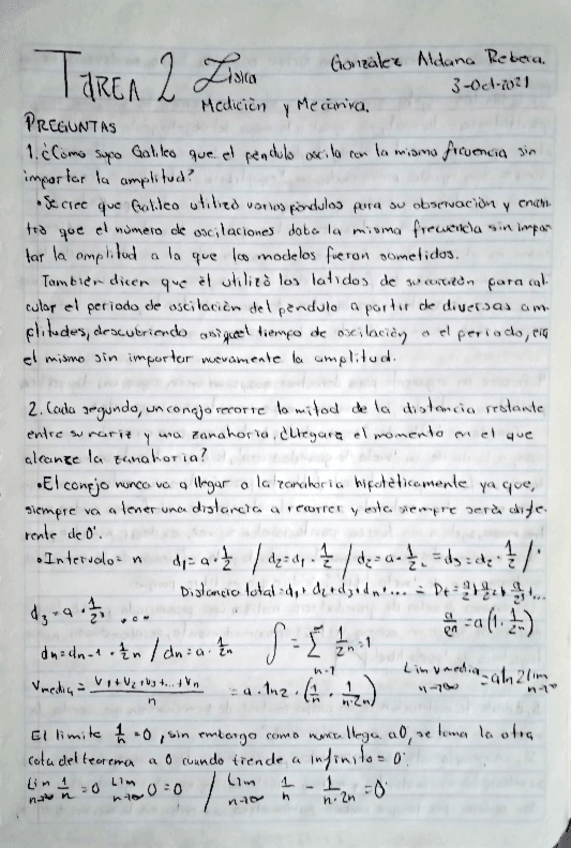 TAREA 2 Física González Aldana Rebeca.
3-Oct-2021
Medición y Mecánica.
PREGUNTAS
1. ¿Cómo supo Galileo que el péndulo oscila con la misma frecuencia sin
importar la amplitud?
• Se cree que Galileo utilizó varios péndulos para su observación y encon
tró que el número de oscilaciones daba la misma frecuencia sin impor
tar la amplitud a la que los modelos fueron sometidos.
También dicen que él utilizó los latidos de su corazón para cal
cular el periodo de oscilación del péndulo a partir de diversas am
plitudes, descubriendo así que el tiempo de oscilación o el periodo, era
el mismo sin importar nuevamente la amplitud.
2. Cada segundo, un conejo recorre la mitad de la distancia restante
entre su nariz y una zanahoria. ¿Llegará el momento en el que
alcance la zanahoria?
• El conejo nunca va a llegar a la zanahoria hipotéticamente ya que,
siempre va a tener una distancia a recorrer y esta siempre será dife
rente de 0.
• Intervalo = n d₁ = a · 1/2 / d₂ = d₁ · 1/2 / d₂ = a · 1/2² = d₃ = d₂ · 1/2 /
Distancia total = d₁ + d₂ + d₃ + dₙ + .... = Dₜ = a/2 + a/2² + a/2³ + ...
d₃ = a · 1/2³ ... a/2ⁿ = a(1 · 1/2ⁿ)
dₙ = dₙ₋₁ · 1/2ⁿ / dₙ = a · 1/2ⁿ ∫ = ∑ 1/2ⁿ = 1
n=1
Vmedia = V₁+V₂+V₃+...+Vₙ / n = a · ln2 · (1/n · 1/n·2ⁿ) Lim n→∞ Vmedia = a ln 2 lim n→∞
El límite 1/n = 0, sin embargo como nunca llega a 0, se toma la otra
cota del teorema a 0 cuando tiende a infinito = 0.
Lim n→∞ 1/n = 0 Lim n→∞ 0 = 0 / Lim n→∞ 1/n - 1/n·2n = 0